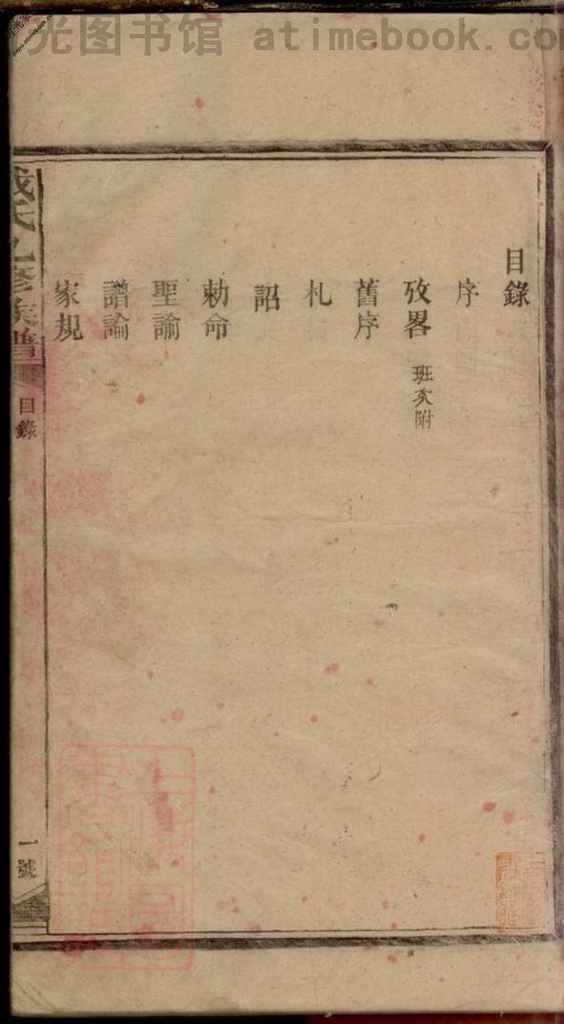 光图书馆 atimebook.co
目錄
序
攷畧 班次附
舊序
札
詔
勅命
聖諭
譜論
家規
氏九修族譜
目錄
一號